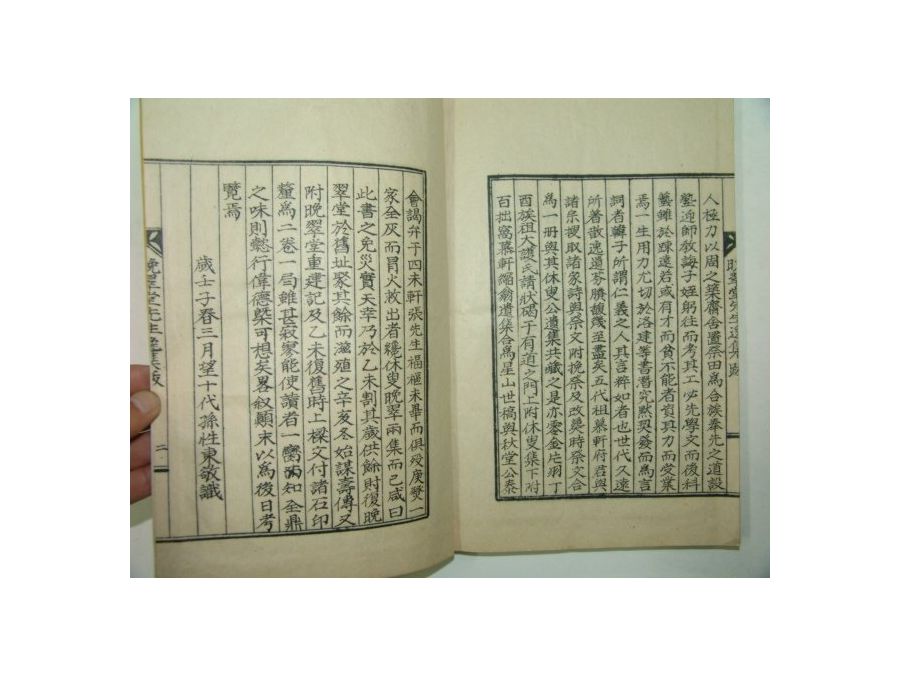 晩翠堂先生逸集跋
人極力以周之築齋舍置祭田爲合族奉先之道設
塾迎師敎誨子姪躬往而考其工必先學文而後科
藝雖於踈遠若或有才而貧不能者資其力而受業
焉一生用力尤切於洛建等書潛究默契發而爲言
詞者韓子所謂仁義之人其言粹如者也世代久遠
所著散逸遺芬賸馥幾至盡矣五代祖慕軒府君與
諸宗搜取諸家詩與祭文附挽祭及改葬時祭文合
爲一冊與其休叟公遺集共藏之是亦零金片羽丁
酉族祖大護氏請狀碣于有道之門上附休叟集下附
百拙窩慕軒縮翁遺集合爲星山世稿與秋堂公泰
會謁弁于四未軒張先生福樞未畢而俱歿庚燹一
家全灰而冒火救出者纔休叟晩翠兩集而已咸曰
此書之免災實天幸乃於乙未割其歲供餘則復晩
翠堂於舊址聚其餘而滋殖之辛亥冬始謀壽傳又
附晩翠堂重建記及乙未復舊時上樑文付諸石印
釐爲二卷一局雖甚寂寥能使讀者一臠而知全鼎
之味則懿行偉德槩可想矣畧叙顚末以爲後日考
覽焉
歲壬子春三月望十代孫性東敬識
晩翠堂先生逸集跋
二